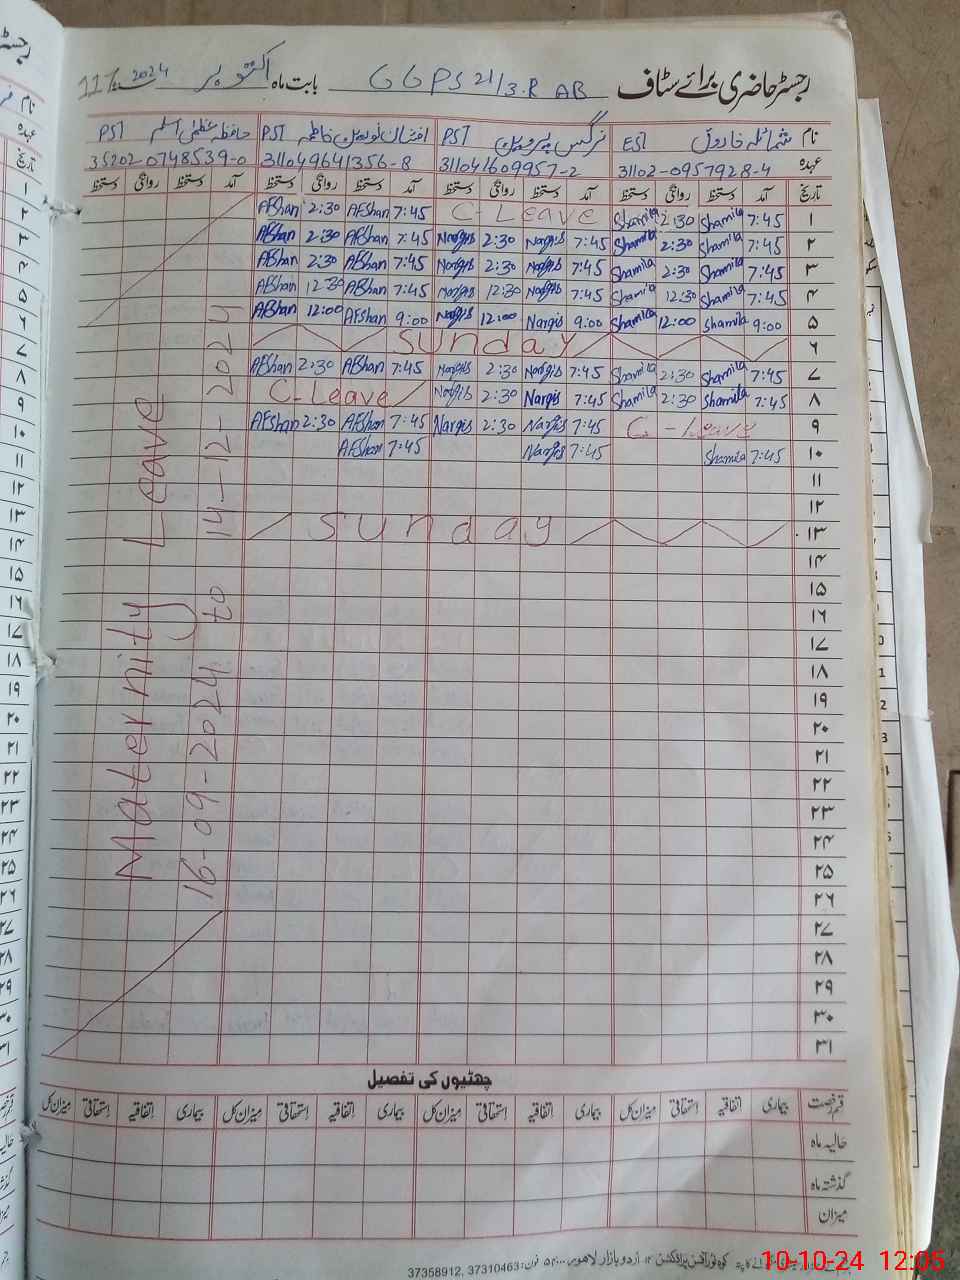 رجسٹر حاضری برائے سٹاف GGPS 21/3.R AB بابت ماہ اکتوبر 2024 117
نام شمائلہ ESI نرگس پروین PST افشاں فاطمہ PST حافظہ عظمیٰ اسلم PST
عہدہ 31102-0957928-4 311041609957-2 311049641356-8 35202 0748539-0
تاریخ آمد دستخط روانگی دستخط آمد دستخط روانگی دستخط آمد دستخط روانگی دستخط آمد دستخط روانگی دستخط
۱ 7:45 Shamila 2:30 Shamila C-Leave 7:45 AFshan 2:30 AFshan
۲ 7:45 Shamila 2:30 Shamila 7:45 Nargis 2:30 Nargis 7:45 AFshan 2:30 AFshan
۳ 7:45 Shamila 2:30 Shamila 7:45 Nargis 2:30 Nargis 7:45 AFshan 2:30 AFshan
۴ 7:45 Shamila 12:30 Shamila 7:45 Nargis 12:30 Nargis 7:45 AFshan 12:30 AFshan
۵ 9:00 Shamila 12:00 Shamila 9:00 Nargis 12:00 Nargis 9:00 AFshan 12:00 AFshan
۶ Sunday
۷ 7:45 Shamila 2:30 Shamila 7:45 Nargis 2:30 Nargis 7:45 AFshan 2:30 AFshan
۸ 7:45 Shamila 2:30 Shamila 7:45 Nargis 2:30 Nargis C-Leave
۹ C-Leave 7:45 Nargis 2:30 Nargis 7:45 AFshan 2:30 AFshan
۱۰ 7:45 Shamila 7:45 Nargis 7:45 AFshan
۱۱
۱۲
۱۳ Sunday
۱۴
۱۵
۱۶
۱۷
۱۸
۱۹
۲۰
۲۱
۲۲
۲۳
۲۴
۲۵
۲۶
۲۷
۲۸
۲۹
۳۰
۳۱
Maternity Leave
16-09-2024 to 14-12-2024
چھٹیوں کی تفصیل
قسم رخصت بیماری اتفاقیہ استحقاقی میزان کل بیماری اتفاقیہ استحقاقی میزان کل بیماری اتفاقیہ استحقاقی میزان کل بیماری اتفاقیہ استحقاقی میزان کل
حالیہ ماہ
گذشتہ ماہ
میزان
اردو بازار لاہور فون: 37310463, 37358912
10-10-24 12:05